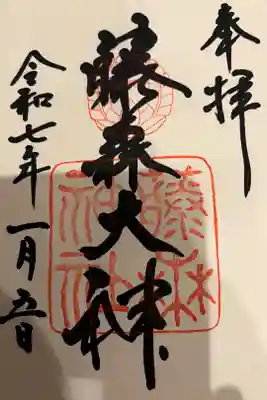 奉拝
藤森大神
藤森
神社
令和七年一月五日